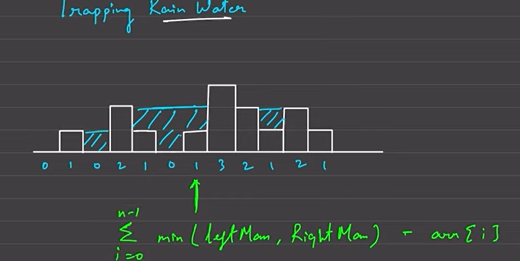 Trapping Rain Water
0 1 0 2 1 0 1 3 2 1 2 1
n-1
∑ min(leftMax, RightMax) - arr[i]
i=0